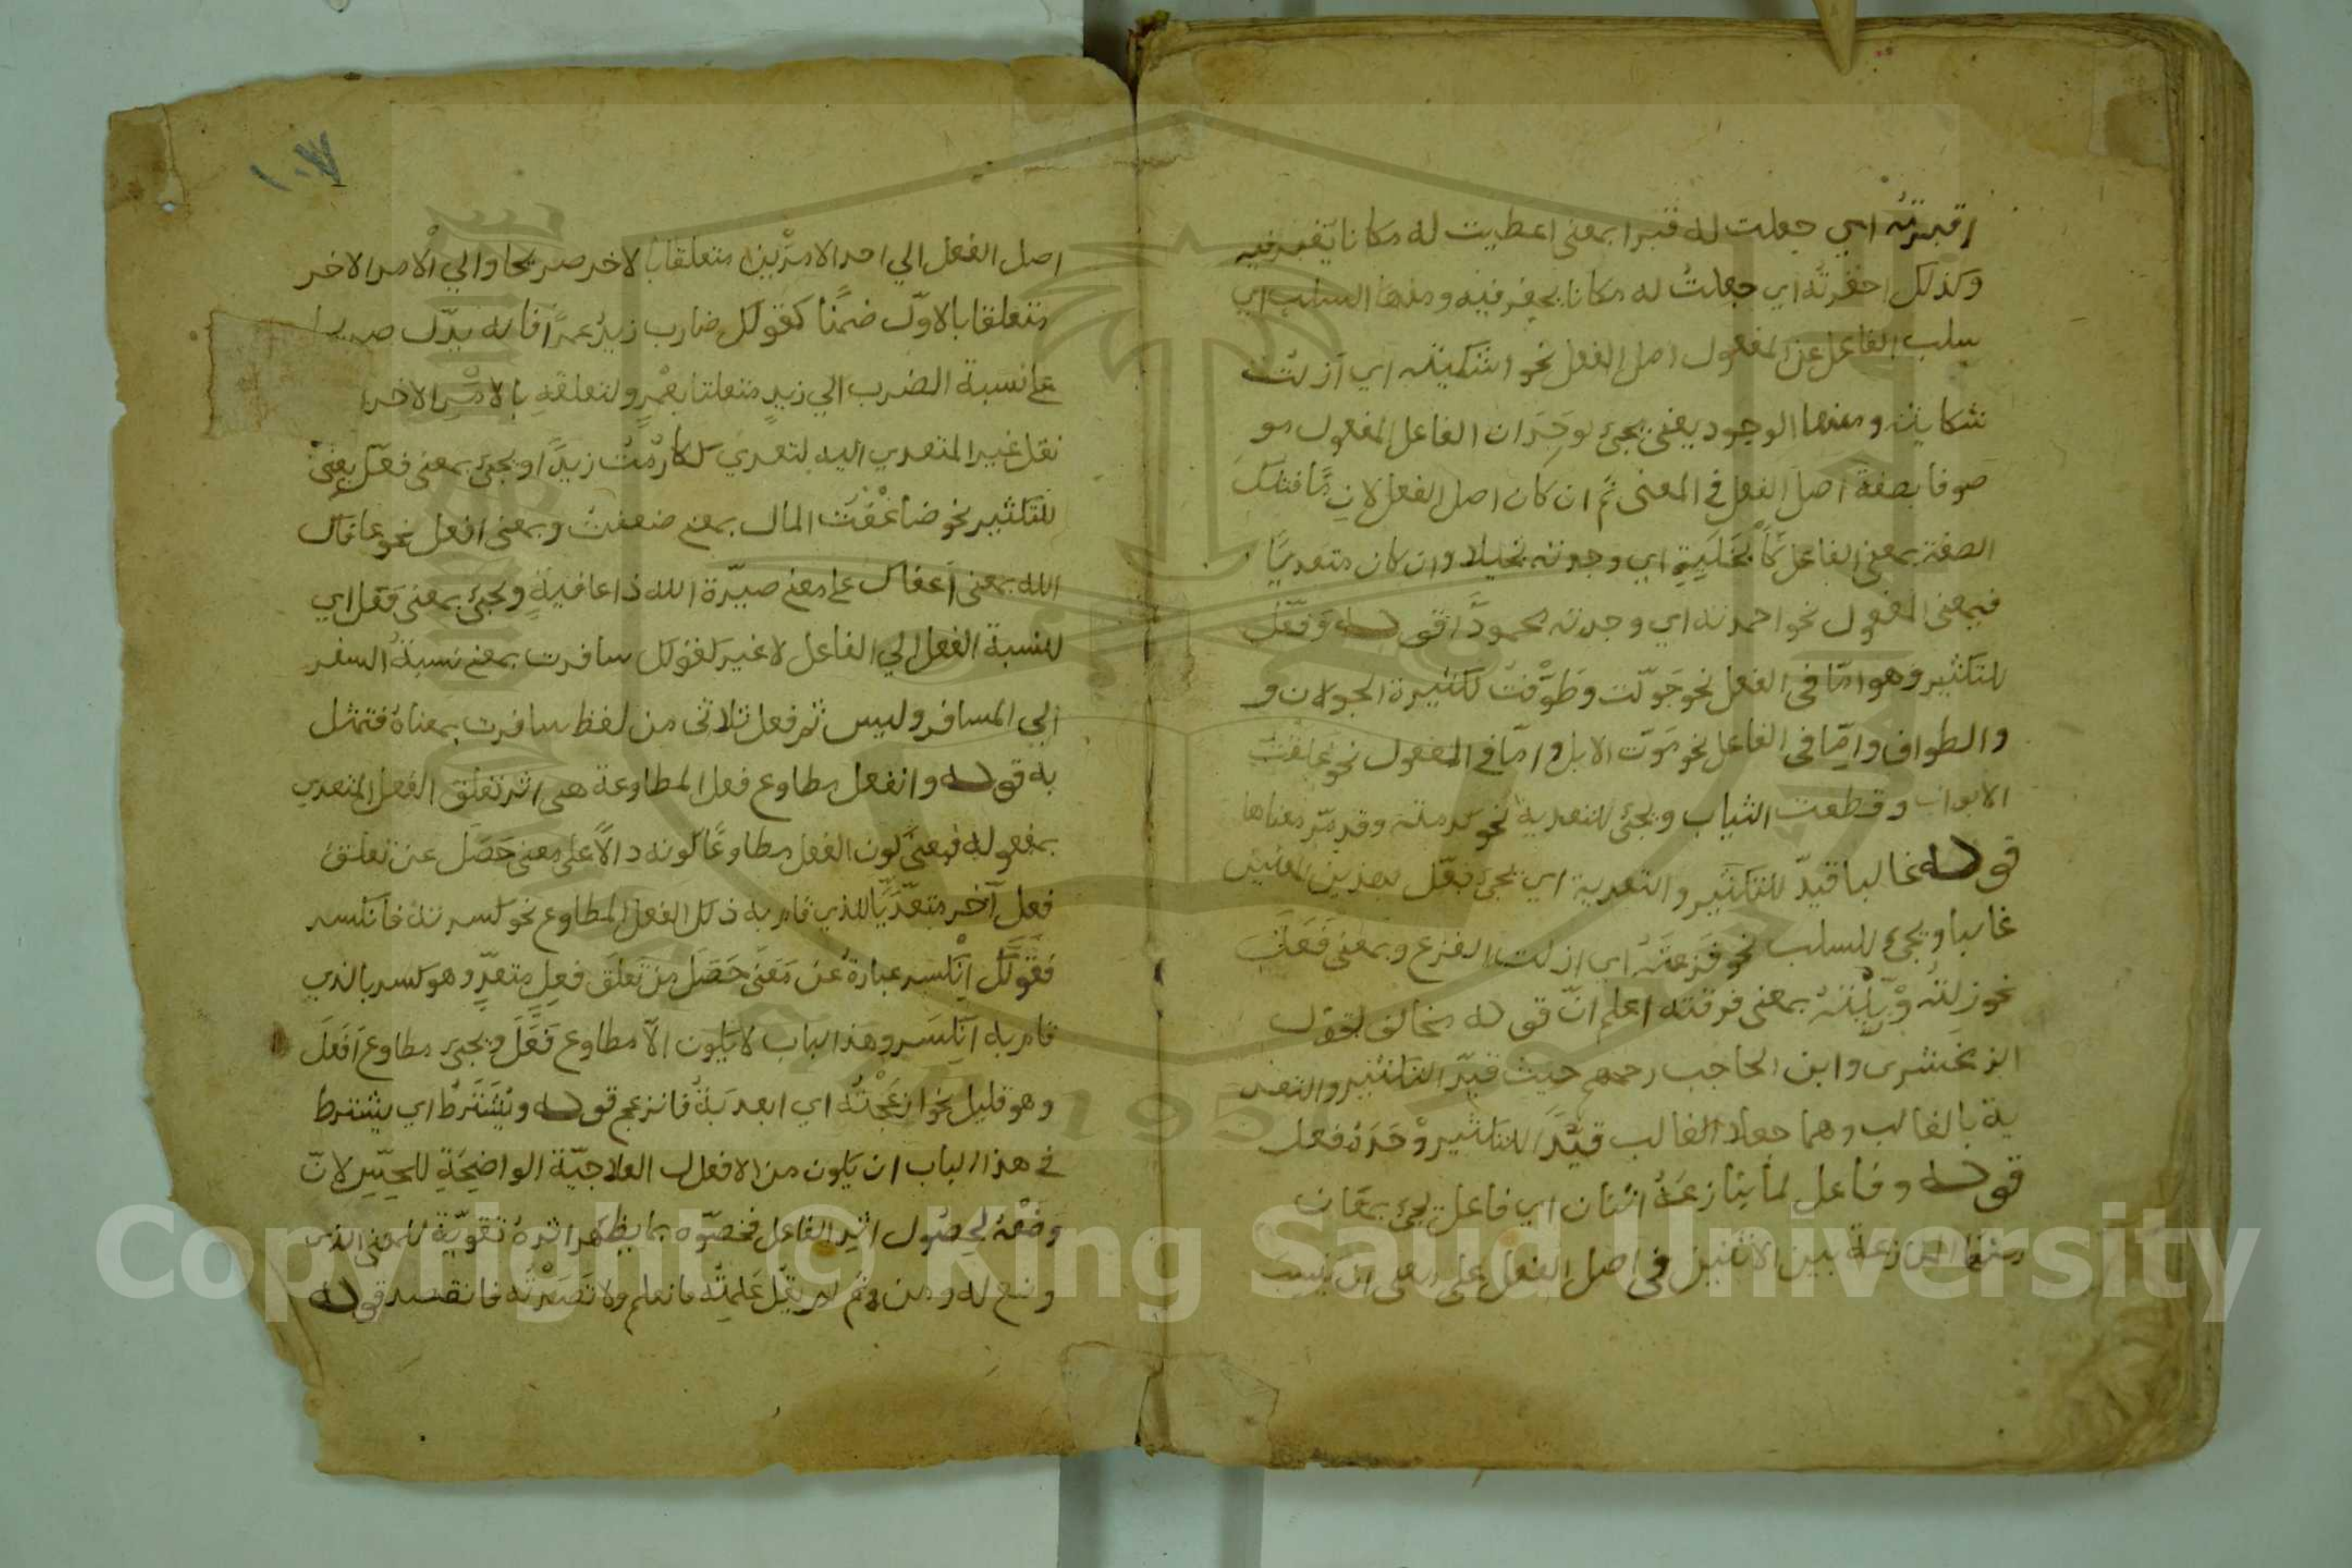 اقبرته اي جعلت له قبرا بمعنى اعطيت له مكانا يقبر فيه
وكذلك احفرته اي جعلت له مكانا يحفر فيه ومنها السلب اي
سلب الفاعل عن المفعول اصل الفعل نحو اشكيته اي ازلت
شكايته ومنها الوجود يعنى يجئ لوجدان الفاعل المفعول مو
صوفا بصفة اصل الفعل في المعنى ثم ان كان اصل الفعل لازما فتلك
الصفة بمعنى الفاعل اي وجدته بخيلا وان كان متعديا
فبمعنى المفعول نحو احمدته اي وجدته محمودا قوله وفعل
للتكثير وهو اما في الفعل نحو جولت وطوفت لكثيرة الجولان و
والطواف واما في الفاعل نحو موت الابل واما في المفعول نحو غلقت
الابواب وقطعت الثياب ويجئ للتعدية نحو وقد مر معناها
قوله غالبا قيد للتكثير والتعدية اي يجئ فعل بهذين المعنيين
غالبا ويجئ للسلب نحو فزعته اي ازلت الفزع وبمعنى فعل
نحو زلته بمعنى فرقته اعلم ان قوله مخالف لقول
الزمخشرى وابن الحاجب رحمهم حيث قيد التكثير والتعد
ية بالغالب وهما جعلا الغالب قيدا للتكثير وحده فعل
قوله وفاعل لما ينازعه اثنان اي فاعل يجئ
المنازعة بين الاثنين في اصل الفعل على معنى ان ينسب
١٠٧
اصل الفعل الي احد الامرين متعلقا بالاخر صريحا والي الامر الاخر
متعلقا بالاول ضمنا كقولك ضارب زيد عمرا فانه يدل صريحا
على نسبة الضرب الي زيد متعلقا بعمر ولتعلقه بالامر الاخر
نقل غير المتعدي اليه لتعدي كارمت زيدا ويجئ بمعنى فعل يعنى
للتكثير نحو ضاعفت المال بمعنى ضعفت وبمعنى افعل نحو عافاك
الله بمعنى اعفاك على معنى صيرة الله ذا عافية ويجئ بمعنى فعل اي
للنسبة الفعل الي الفاعل لا غير كقولك سافرت بمعنى نسبة السفر
الي المسافر وليس ثم فعل ثلاثى من لفظ سافرت بمعناه فتمثل
به قوله وانفعل مطاوع فعل المطاوعة هى اثر تعلق الفعل المتعدي
بمفعوله فمعنى كون الفعل مطاوعا كونه دالا على معنى حصل عن تعلق
فعل آخر متعديا للذي قام به ذلك الفعل المطاوع نحو كسرته فانكسر
فقولك انكسر عبارة عن معنى حصل من تعلق فعل متعد وهو كسر بالذي
قام به انكسر وهذا الباب لا يكون الا مطاوع فعل ويجئ مطاوع افعل
وهو قليل نحو ازعجته اي ابعدته فانزعج قوله ويشترط اي يشترط
في هذا الباب ان يكون من الافعال العلاجية الواضحة للحس لان
وضعه لحصول اثر الفاعل فخصوه بما يظهر اثره تقوية للمعنى الذي
وضع له ومن ثم لم يقل علمته فانعلم ولا قصدته فانقصد قوله